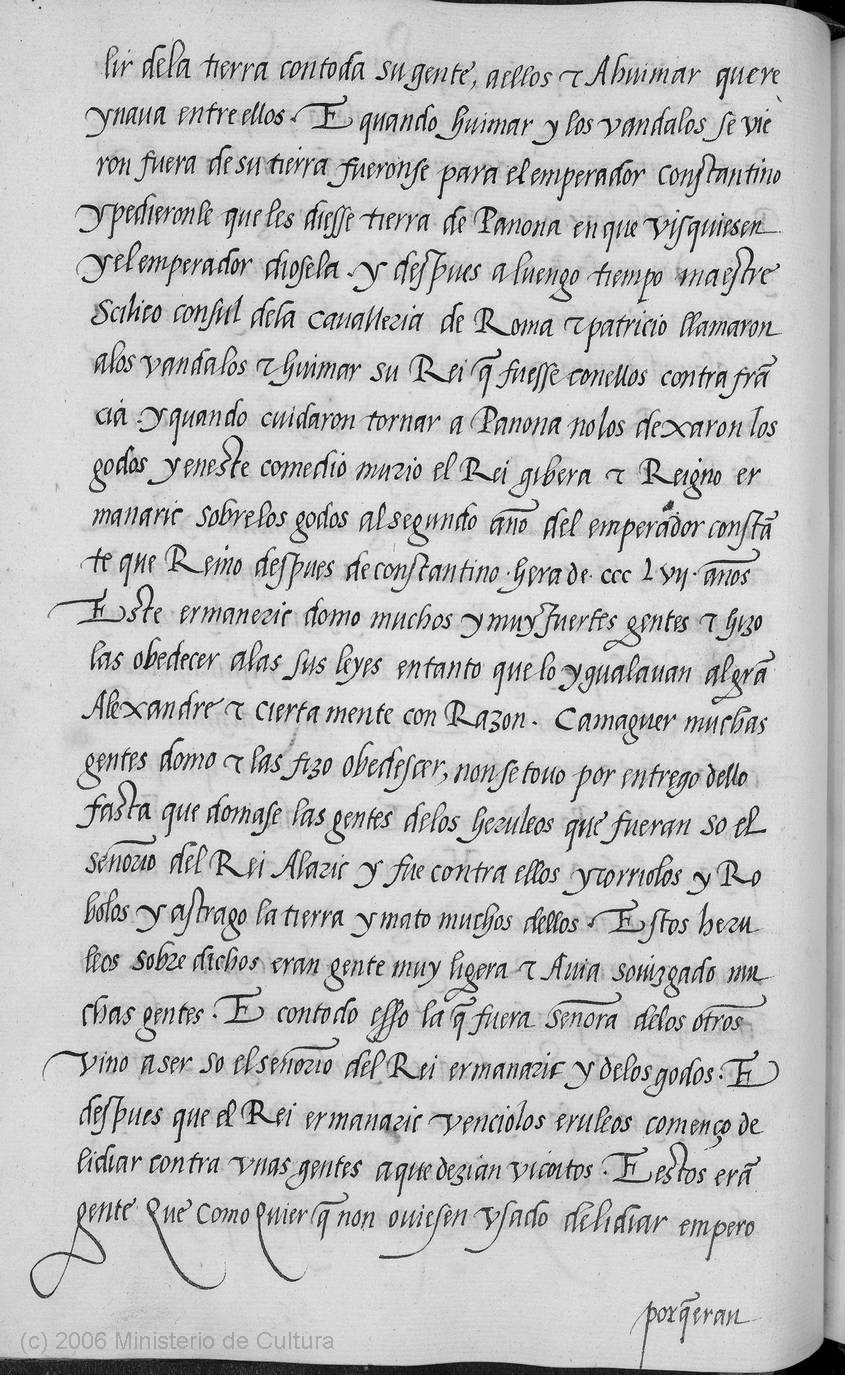 lir dela tierra contoda su gente, aellos τ Ahuimar quere
ynava entre ellos. E quando huimar y los vandalos se vie
ron fuera de su tierra fueronse para el emperador constantino
ypedieronle que les diesse tierra de Panona en que visquiesen
y el emperador diosela. y despues a luengo tiempo maestre
Scilico consul dela cavalleria de Roma τ patricio llamaron
alos vandalos τ huimar su Rei q̃ fuesse conellos contra frã
cia. y quando cuidaron tornar a Panona nolos dexaron los
godos y eneste comedio murio el Rei gibera τ Reigno er
manaric sobrelos godos al segundo año del emperador constã
te que Reino despues de constantino. hera de. ccc Lvij. años
Este ermaneric domo muchos y muy fuertes gentes τ hizo
las obedecer alas sus leyes entanto que lo ygualavan al grã
Alexandre τ cierta mente con Razon. Camaguer muchas
gentes domo τ las fizo obedescer, non se tovo por entrego dello
fasta que domase las gentes delos heruleos que fueran so el
señorio del Rei Alaric y fue contra ellos y corriolos y Ro
bolos y astrago la tierra y mato muchos dellos. Estos heru
leos sobre dichos eran gente muy ligera τ Avia sovizgado mu
chas gentes. E contodo esso la q̃ fuera señora delos otros
vino aser so el señorio del Rei ermanaric y delos godos. E
despues que el Rei ermanaric venciolos eruleos començo de
lidiar contra vnas gentes aque dezian Estos erã
gente Que como Quier q̃ non oviesen vsado de lidiar empero
porq̃ eran
(c) 2006 Ministerio de Cultura